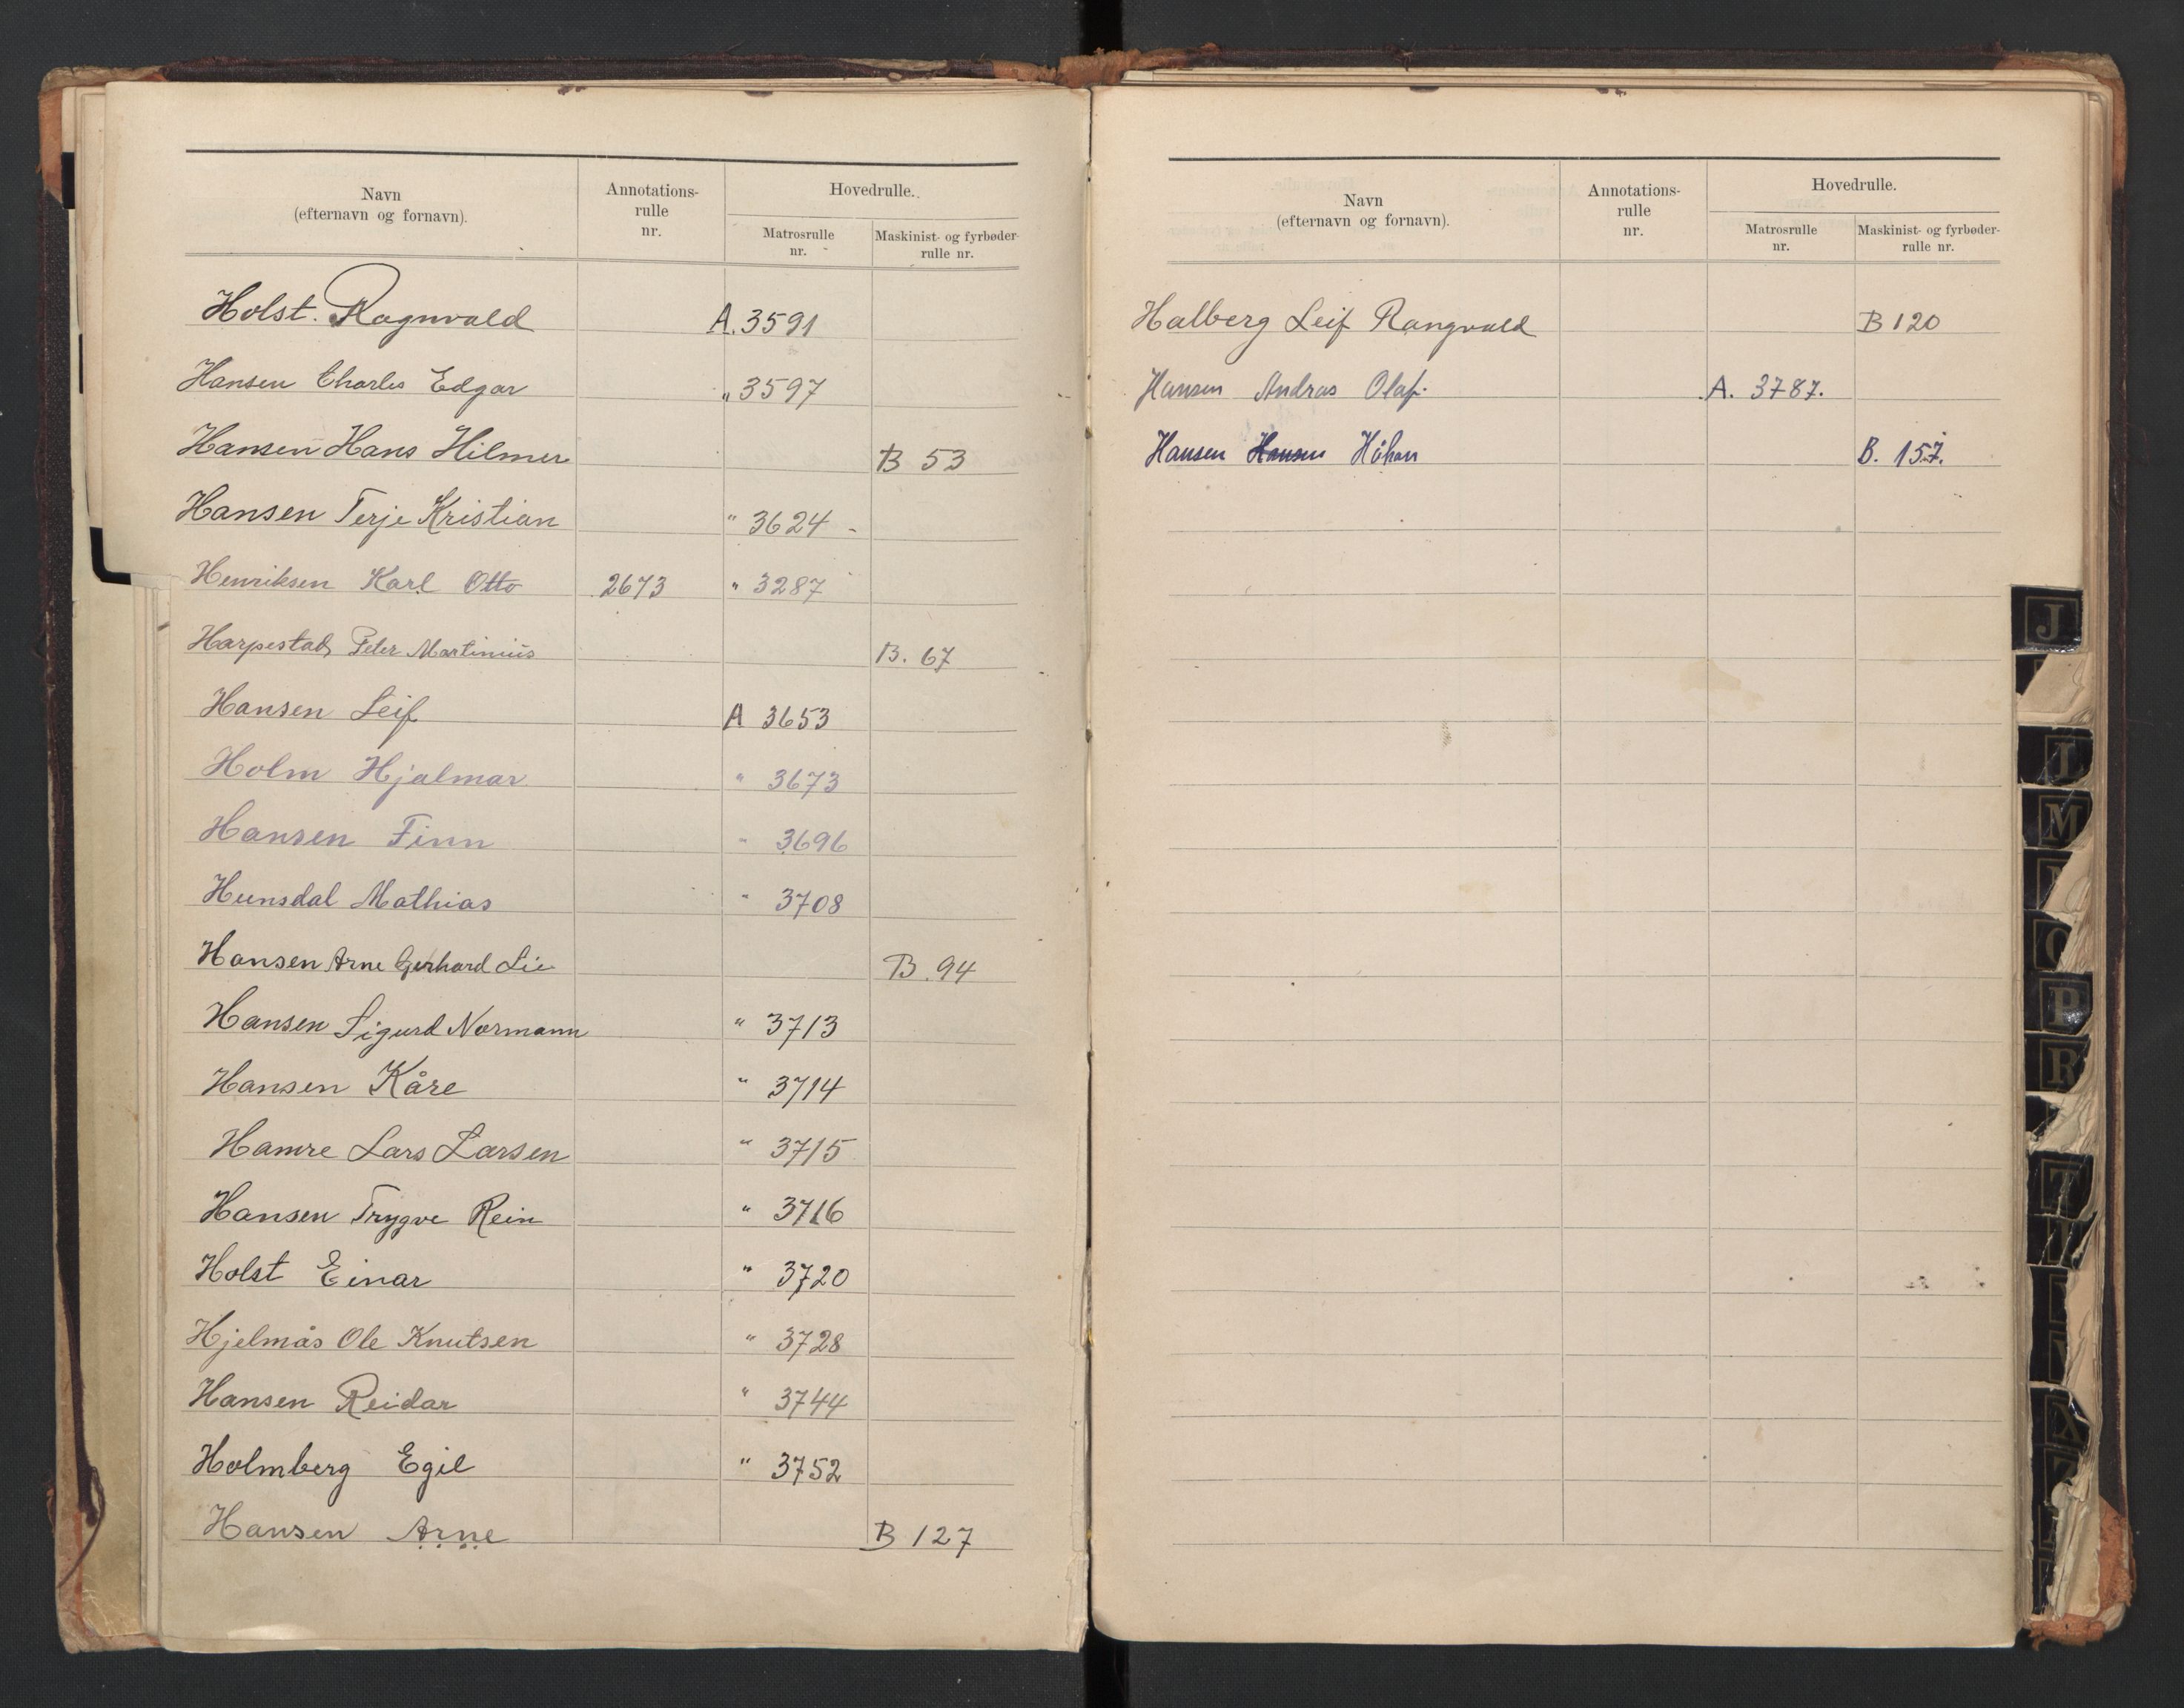 Navn
(efternavn og fornavn).
Annotations-
rulle
nr.
Hovedrulle.
Matrosrulle
nr.
Maskinist- og fyrbøder-
rulle nr.
Holst. Ragnvald A. 3591
Hansen Charles Edgar " 3597
Hansen Hans Hilmer B 53
Hansen Terje Kristian " 3624 -
Henriksen Karl Otto 2673 " 3287
Harpestad Peter Martinius B. 67
Hansen Leif A 3653
Holm Hjalmar " 3673
Hansen Finn " 3696
Hunsdal Mathias " 3708
Hansen Arne Gerhard Lie B. 94
Hansen Sigurd Normann " 3713
Hansen Kåre " 3714
Hamre Lars Larsen " 3715
Hansen Trygve Rein " 3716
Holst Einar " 3720
Hjelmås Ole Knutsen " 3728
Hansen Reidar " 3744
Holmberg Egil " 3752
Hansen Arne B 127
Navn
(efternavn og fornavn).
Annotations-
rulle
nr.
Hovedrulle.
Matrosrulle
nr.
Maskinist- og fyrbøder-
rulle nr.
Halberg Leif Rangvald B 120
Hansen Andras Olaf. A. 3787.
Hansen Hansen Håkon B. 157.
J
M
O
P
R
T
X